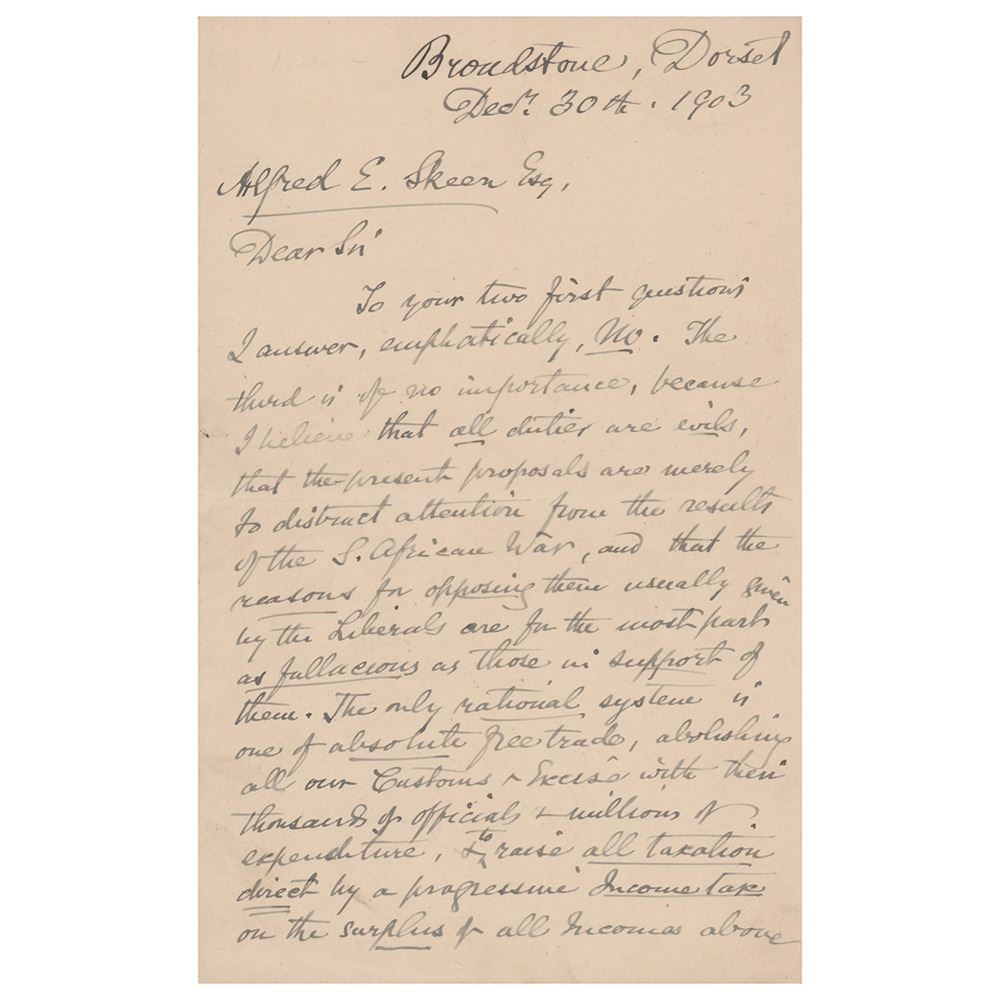 Broadstone, Dorset
Decr. 30th. 1903
Alfred E. Skeen Esq,
Dear Sir
To your two first questions
I answer, emphatically, No. The
third is of no importance, because
I believe that all duties are evils,
that the present proposals are merely
to distract attention from the results
of the S. African War, and that the
reasons for opposing them usually given
by the Liberals are for the most part
as fallacious as those in support of
them. The only rational system is
one of absolute free trade, abolishing
all our Customs & Excise with their
thousands of officials & millions of
expenditure, & to raise all taxation
direct by a progressive Income tax
on the surplus of all Incomes above